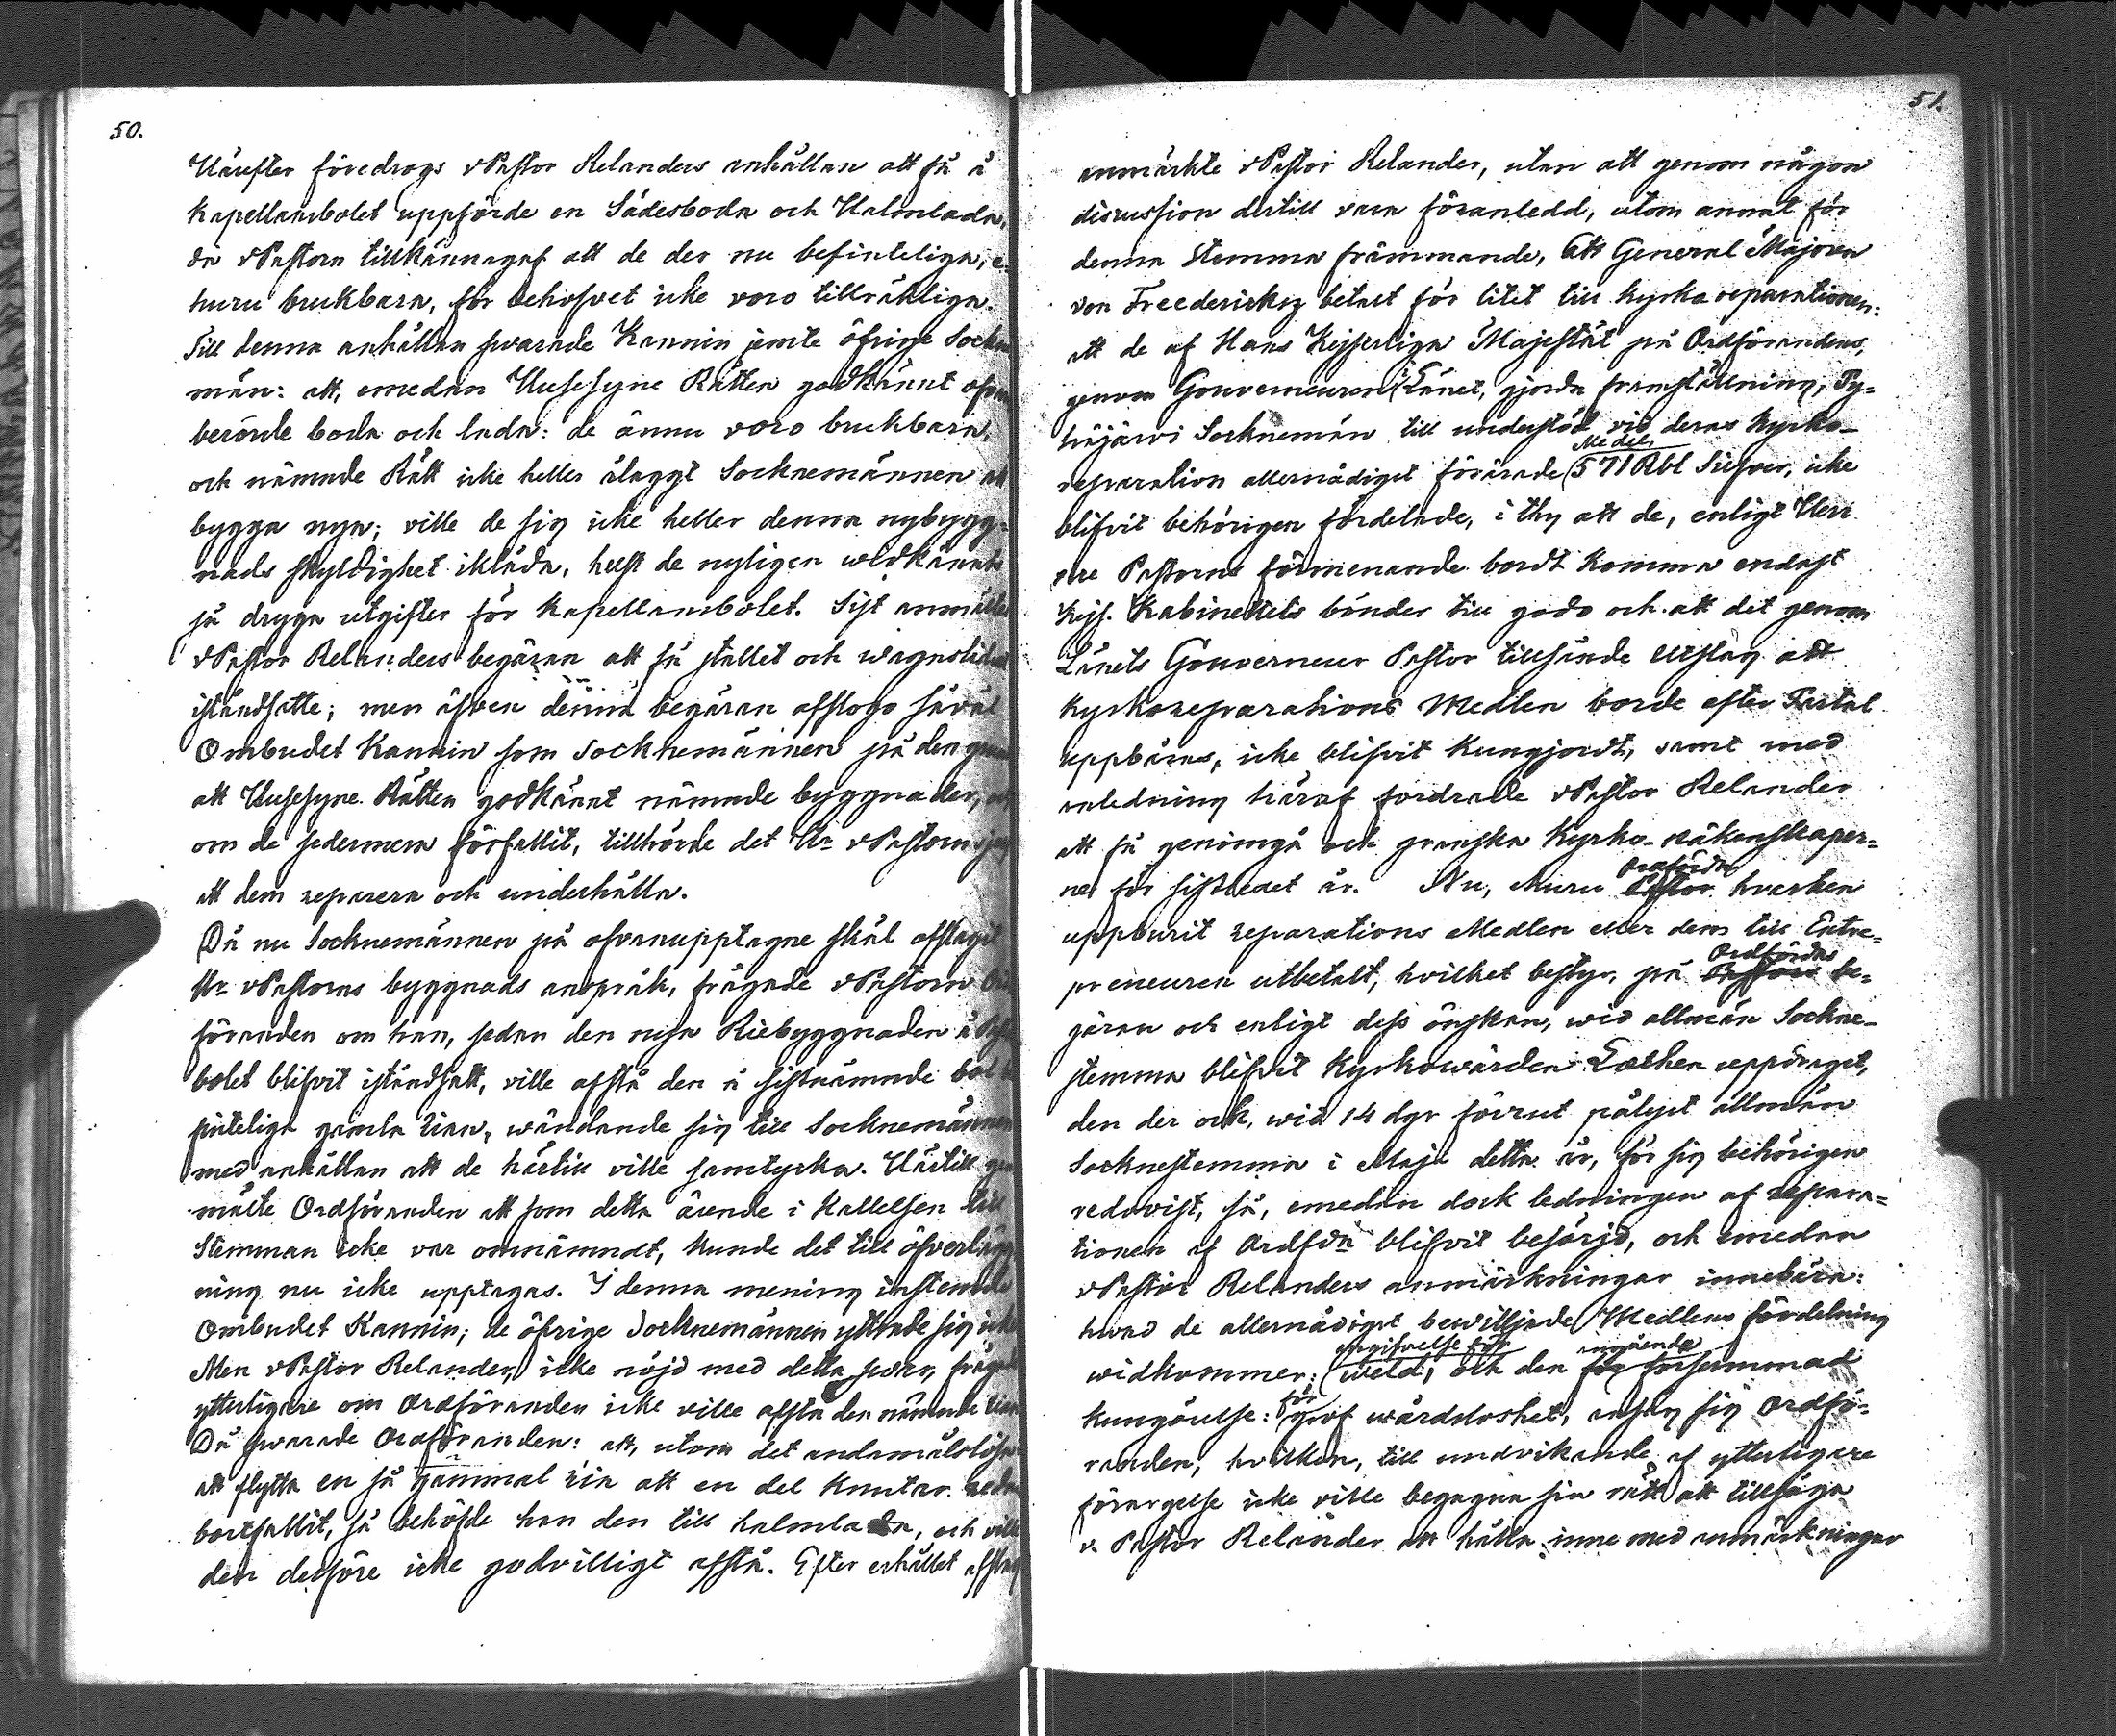 50.
Härefter föredrogs vPastor Relanders anhållan att få å
kapellansbolet uppförde en Sädesboda och Halmlada,
då vPastorn tillkännagaf att de der nu befinteliga, e-
huru brukbara, för behofvet icke voro tillräkliga.
Till denna anhållan svarade Kannin jemte öfrige Sockne
män: att, emedan Husesyne Rätten godkännt ofvan
berörde boda och lada: de ännu voro brukbara,
och nämnde Rätt icke heller ålaggt Socknemännen att
bygga nya; ville de sig icke heller denna nybygg-
nads skyldighet ikläda, helst de nyligen widkännts
så dryga utgifter för kapellansbolet. Sist anmältes
vPastor Relanders begäran att få stallet och wagnslidret
iståndsatte; men äfven denna begäran afslogo såväl
Ombudet Kannin som Socknemännen på den grund
att Husesyne Rätten godkännt nämnde byggnader, och
om de sedermera förfallit, tillhörde det Hr vPastorn sjelf
att dem reparera och underhålla.
Då nu Socknemännen på ofvanupptagne skäl afslagit
Hr vPastorns byggnads anspråk, frågade vPastorn Ord
föranden om han, sedan den nya Riebyggnaden å
bolet blifvit iståndsatt, ville afstå den å sistnämnde bol be
finteliga gamla rian, wändande sig till Socknemännen
med anhållan att de härtill ville samtycka. Härtill gen
mälte Ordföranden att som detta ärende i Kallelsen till
Stemman icke var omnämndt, kunde det till öfverlägg
ning nu icke upptagas. I denna mening instemde
Ombudet Kannin; de öfrige Socknemännen yttrade sig icke
Men vPastor Relander, icke nöjd med detta svar, frågade
ytterligare om Ordföranden icke ville afstå den nämnde rian
Då svarade Ordföranden: att, utom det ändamålslösa
att flytta en så gammal ria att en del knutar redan
bortfallit, så behöfde han den till halmlada, och ville
den derföre icke godvilligt afstå. Efter erhållet afslag
51.
anmärkte vPastor Relander, utan att genom någon
discussion dertill vara föranledd, utom annat för
denna stemma främmande, Att General Majoren
von Freedericksz betalt för litet till kyrkoreparationen:
att de af Hans Kejserliga Majestät på Ordförandens,
genom Gouverneuren i Länet, gjorda framställning, Py-
häjärvi Socknemän till understöd vid deras Kyrko-
Medel,
reparation allernådigst förärade 571 Rbl Silfver, icke
blifvit behörigen fördelade, i thy att de, enligt Herr
vice Pastorns förmenande bordt komma endast
Kejs. Kabinettets bönder till godo och att det genom
Länets Gouverneur Pastor tillsände utslag att
Kyrkoreparations Medlen borde efter Fastal
uppbäras, icke blifvit kungjordt, samt med
anledning häraf fordrade vPastor Relander
att få genomgå och granska Kyrko-räkenskaper-
Ordförden
ne för sistledet år. Nu, ehuru Pastor hvarken
uppburit reparations Medlen eller dem till Entre-
Ordfördes
preneuren utbetalt, hvilket bestyr, på Pastors be-
gäran och enligt dess önskan, wid allmän Sockne-
stemma blifvit Kyrkowärden Lathen uppdraget,
den der ock, wid 14 dgr förrut pålyst allmän
Socknestemma i Maji detta år, för sig behörigen
redovist, så, emedan dock ledningen af repara-
tionen af Ordfdn blifvit besörjd, och emedan
vPastor Relanders anmärkningar innebära:
hvad de allernådigst bewilljade Medlens fördelning
angifvelse för ingående
widkommer: weld, och den för försummad
för
kungörelse: grof wårdslöshet, ansåg sig Ordfö-
randen, hvilken, till undvikande af ytterligare
förargelse icke ville begagna sin rätt att tillsäga
v. Pastor Relander att hålla inne med anmärkningar